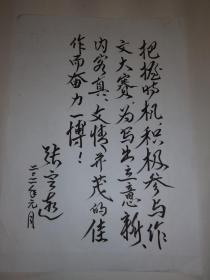 把握时机，积极参与作
文大赛，为写出立意新、
内容真、文情并茂的佳
作而奋力一博！
张
二〇二一年元月